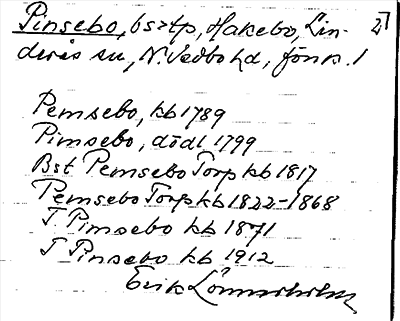 Pinsebo, bs>tp, Hakebo, Lin-
derås sn, N. Vedbo hd, Jönk. l
Pemsebo, kb 1789
Pimsebo, dödl 1799
Bst Pemsebo Torp kb 1817
Pemsebo Torp kb 1822-1868
T. Pimsebo kb 1871
T Pinsebo kb 1912
Erik Lönnerholm